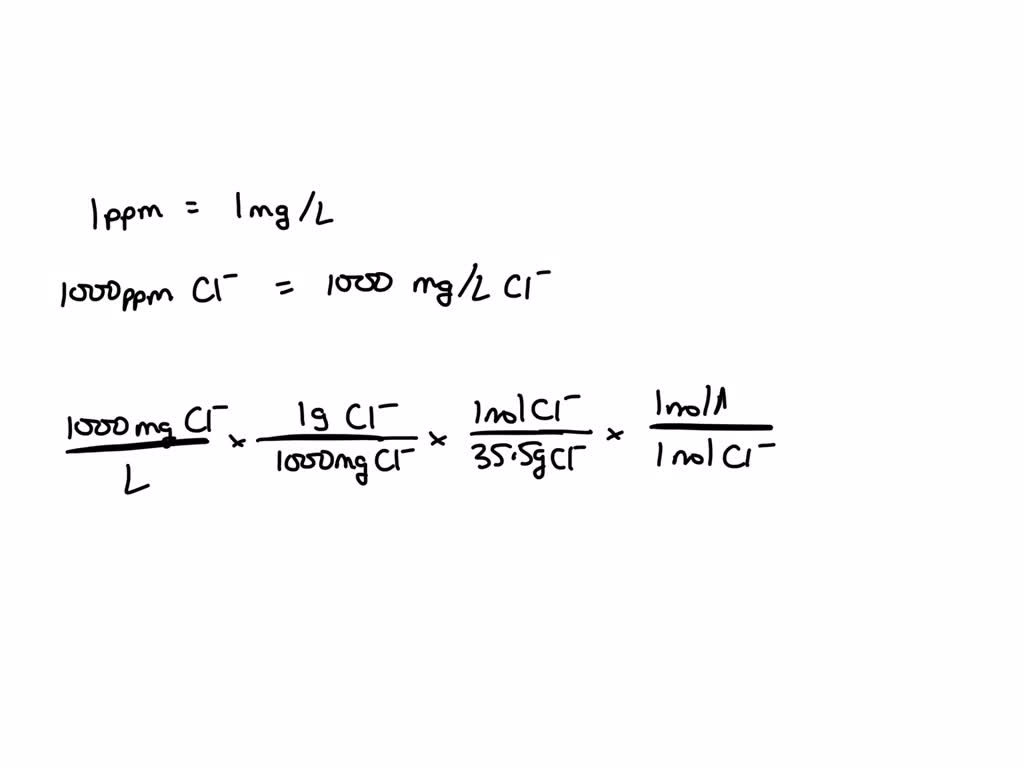 1ppm = 1mg/L
1000ppm Cl⁻ = 1000 mg/L Cl⁻
1000mg Cl⁻/L × 1g Cl⁻/1000mg Cl⁻ × 1mol Cl⁻/35.5g Cl⁻ × 1mol/1mol Cl⁻